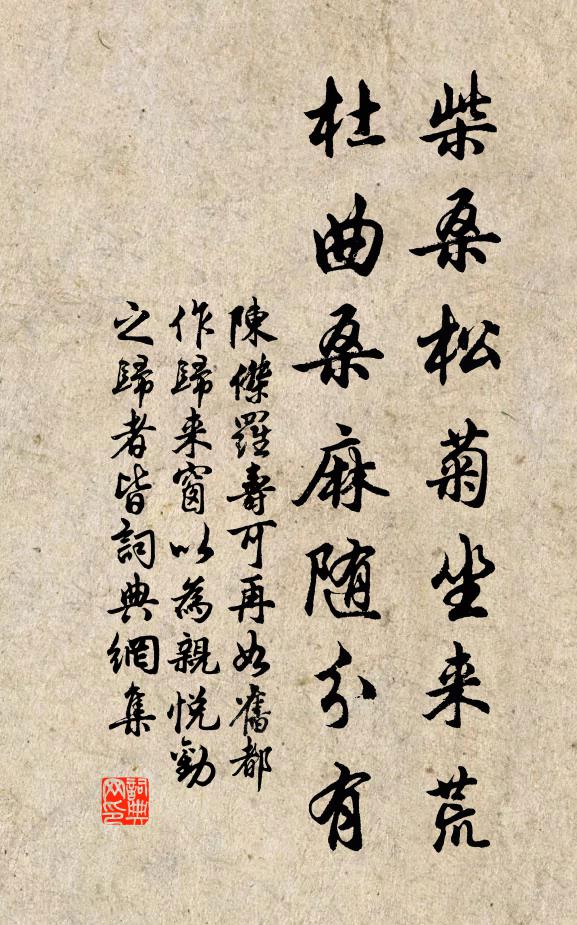 柴桑松菊坐来荒
杜曲桑麻随分有
陳傑羅壽可再如舊都
作歸来窗以為親悦勸
之歸者皆詞典網集
詞典
网印